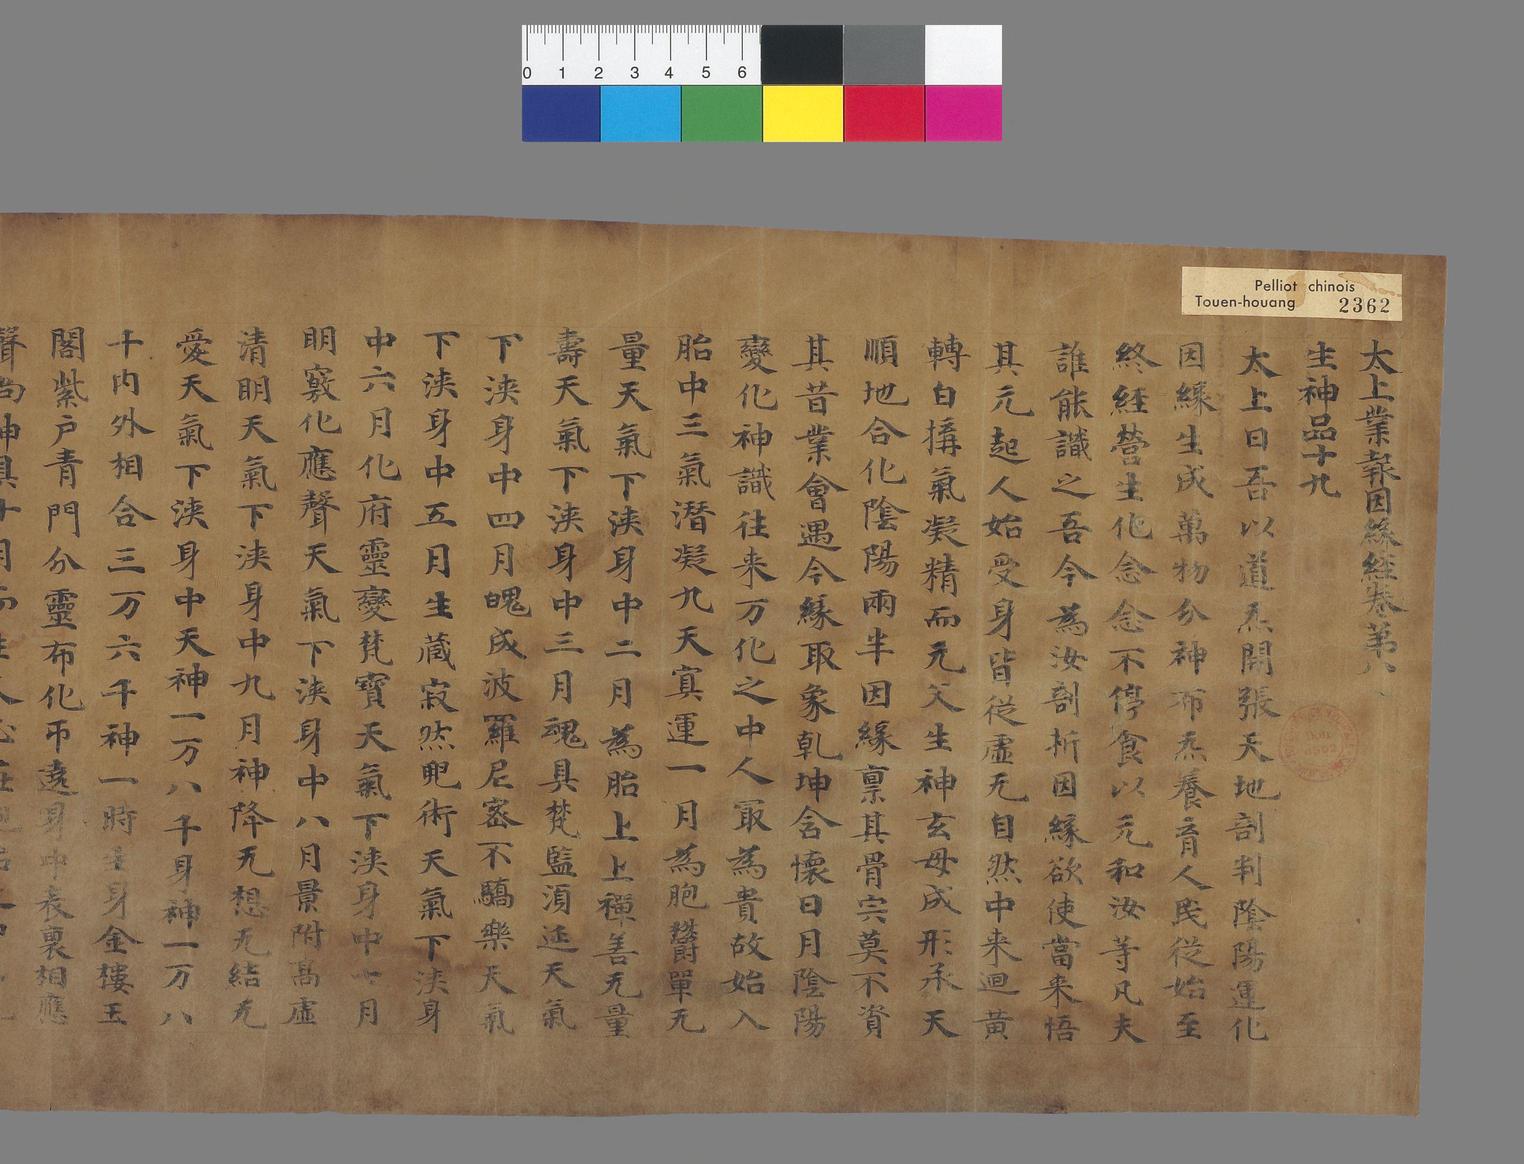 0 1 2 3 4 5 6
Pelliot chinois
Touen-houang 2362
太上業報因緣經卷第八
生神品十九
太上曰吾以道炁開張天地剖判陰陽運化
因緣生成萬物分神布炁養育人民從始至
終經營生化念念不停食以元和汝等凡夫
誰能識之吾今為汝剖析因緣欲使當来悟
其元起人始受身皆從虛无自然中来迴黄
轉白搆氣凝精而元父生神玄母成形承天
順地合化陰陽兩半因緣稟其骨宍莫不資
其昔業會遇今緣取象乹坤含懷日月陰陽
變化神識往来万化之中人冣為貴故始入
胎中三氣潛凝九天寘運一月為胞欝單无
量天氣下浹身中二月為胎上上禪善无量
壽天氣下浹身中三月魂具梵監湏延天氣
下浹身中四月魄成波羅尼宻不驕樂天氣
下浹身中五月生藏寂然兜術天氣下浹身
中六月化府靈變梵寶天氣下浹身中七月
明竅化應聲天氣下浹身中八月景附髙虛
清明天氣下浹身中九月神降无想无結无
愛天氣下浹身中天神一万八千身神一万八
千內外相合三万六千神一時生身金樓玉
閣紫戶青門分靈布化帀遶身中表裏相應
聲尚神具十月